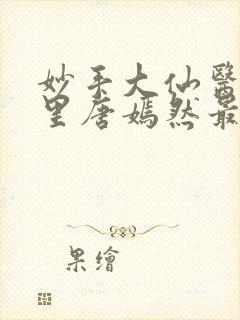 妙手大仙醫
里唐嫣然最
果繪